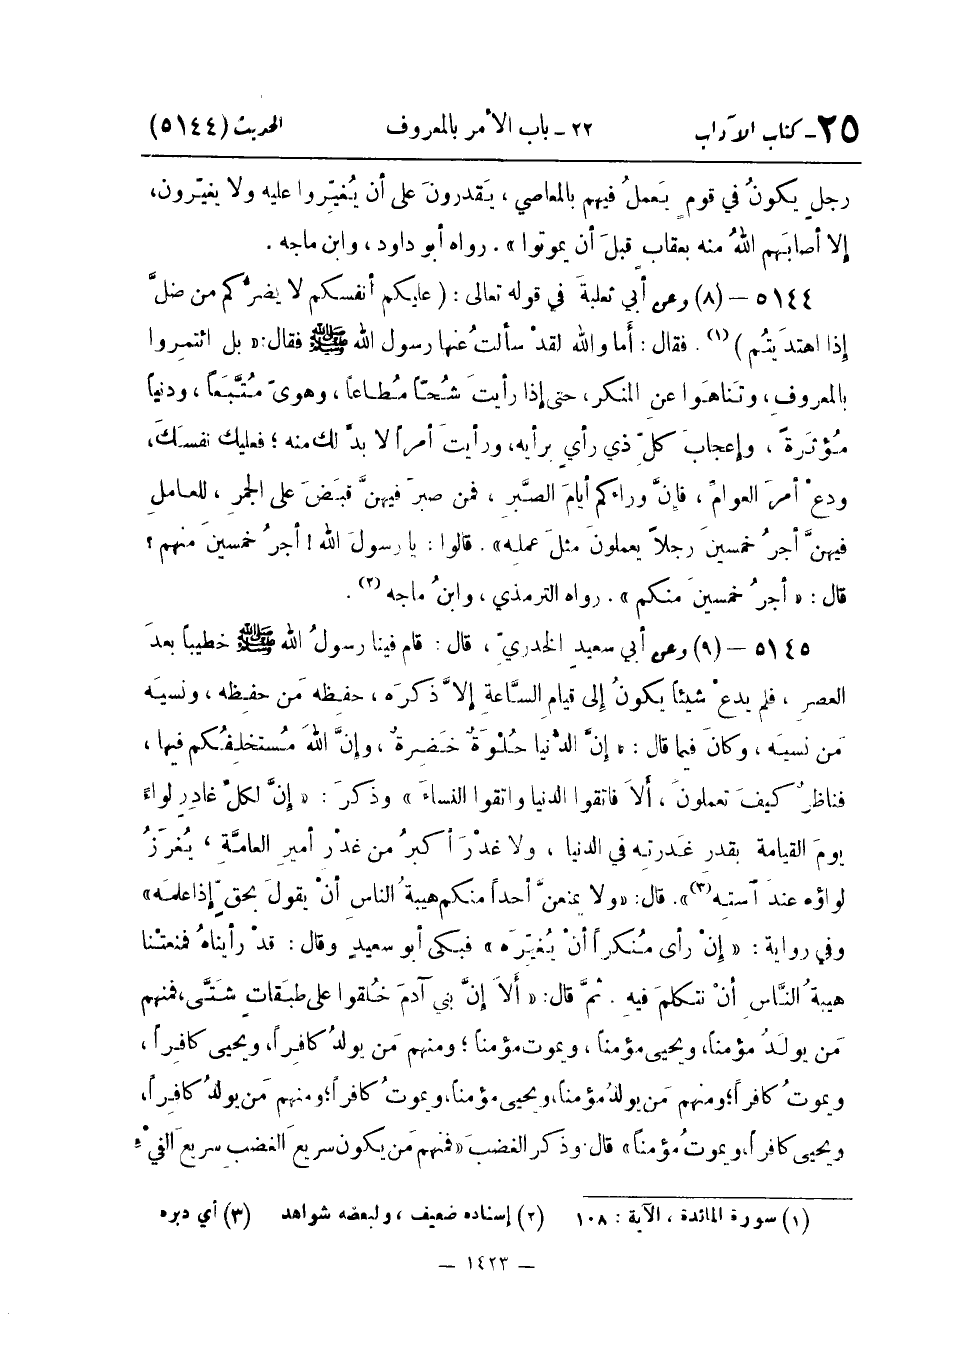 ٢٥ـ كتاب الآداب ٢٢ ـ باب الأمر بالمعروف الحديث (٥١٤٤)
رجلٍ يكونُ في قومٍ يَعملُ فيهم بالمعاصي ، يَقدرونَ على أن يُغيِّروا عليه ولا يغيّرون،
إلا أصابَهم اللهُ منه بعقابٍ قبلَ أن يموتوا » . رواه أبو داود ، وابن ماجه .
٥١٤٤ – (٨) وعن أبي ثعلبةَ في قوله تعالى : ( عليكم أنفسكم لا يضرُّكم من ضلَّ
إذا اهتدَيتُم ) (١) . فقال : أَما والله لقدْ سألتُ عنها رسول الله ﷺ فقال: « بل ائتمروا
بالمعروفِ ، وتَناهَوا عنِ المنكرِ، حتى إذا رأيتَ شُحّاً مُطاعاً ، وهوىً مُتَّبَعاً ، ودنيا
مُؤثَرةً ، وإعجابَ كلِّ ذي رأيٍ برأيه، ورأيتَ أمراً لا بدَّ لك منه ؛ فعليك نفسَكَ،
ودعْ أمرَ العوامِّ ، فإنَّ وراءكم أيامَ الصَّبرِ ، فمن صبرَ فيهنَّ قبَضَ على الجمرِ ، للعاملِ
فيهنَّ أجرُ خمسينَ رجلاً يعملونَ مثلَ عملِه» . قالوا : يا رسولَ الله ! أجرُ خمسينَ منهم ؟
قال : « أجرُ خمسينَ منكم » . رواه الترمذي ، وابنُ ماجه (٢) .
٥١٤٥ – (٩) وعن أبي سعيدٍ الخدريِّ ، قال : قام فينا رسولُ الله ﷺ خطيباً بعدَ
العصرِ ، فلم يدعْ شيئاً يكونُ إلى قيامِ السَّاعةِ إلاَّ ذكرَه ، حفِظَه مَن حفِظَه ، ونسيَه
مَن نسيَه ، وكانَ فيما قال : « إنَّ الدُّنيا حُلْوَةٌ خَضِرةٌ ، وإنَّ اللهَ مُستخلِفُكم فيها ،
فناظرٌ كيفَ تعملونَ ، أَلاَ فاتقوا الدنيا واتقوا النساءَ » وذكرَ : « إنَّ لكلِّ غادرٍ لواءً
يومَ القيامة بقدرِ غَدرتِه في الدنيا ، ولا غدْرَ أكبرُ من غدْرِ أميرِ العامَّةِ ، يُغرَزُ
لواؤه عندَ آستِه (٣)». قال: «ولا يمنعنَّ أحداً منكم هيبةُ الناس أنْ يقولَ بحقٍّ إذا علمَه»
وفي رواية : « إنْ رأى مُنكراً أنْ يُغيِّرَه » فبكى أبو سعيدٍ وقال : قدْ رأيناهُ فمنعتْنا
هيبةُ النَّاسِ أنْ نتكلمَ فيه . ثمَّ قال: « أَلاَ إنَّ بني آدمَ خُلقوا على طبقاتٍ شتَّى،فمنهم
مَن يولَدُ مؤمناً، ويحيى مؤمناً ، ويموت مؤمناً ؛ ومنهم مَن يولدُ كافراً، ويحيى كافراً ،
ويموتُ كافراً؛ومنهم مَن يولدُ مُؤمناً، ويحيى مؤمناً، ويموتُ كافراً؛ ومنهم مَن يولدُ كافراً،
ويحيى كافراً، ويموتُ مُؤمناً» قال: وذكر الغضبَ «فمنهم مَن يكون سريعَ الغضبِ سريعَ الفيْءِ
(١) سورة المائدة ، الآية : ١٠٨ (٢) إسناده ضعيف ، ولبعضه شواهد (٣) أي دبره
– ١٤٢٣ –